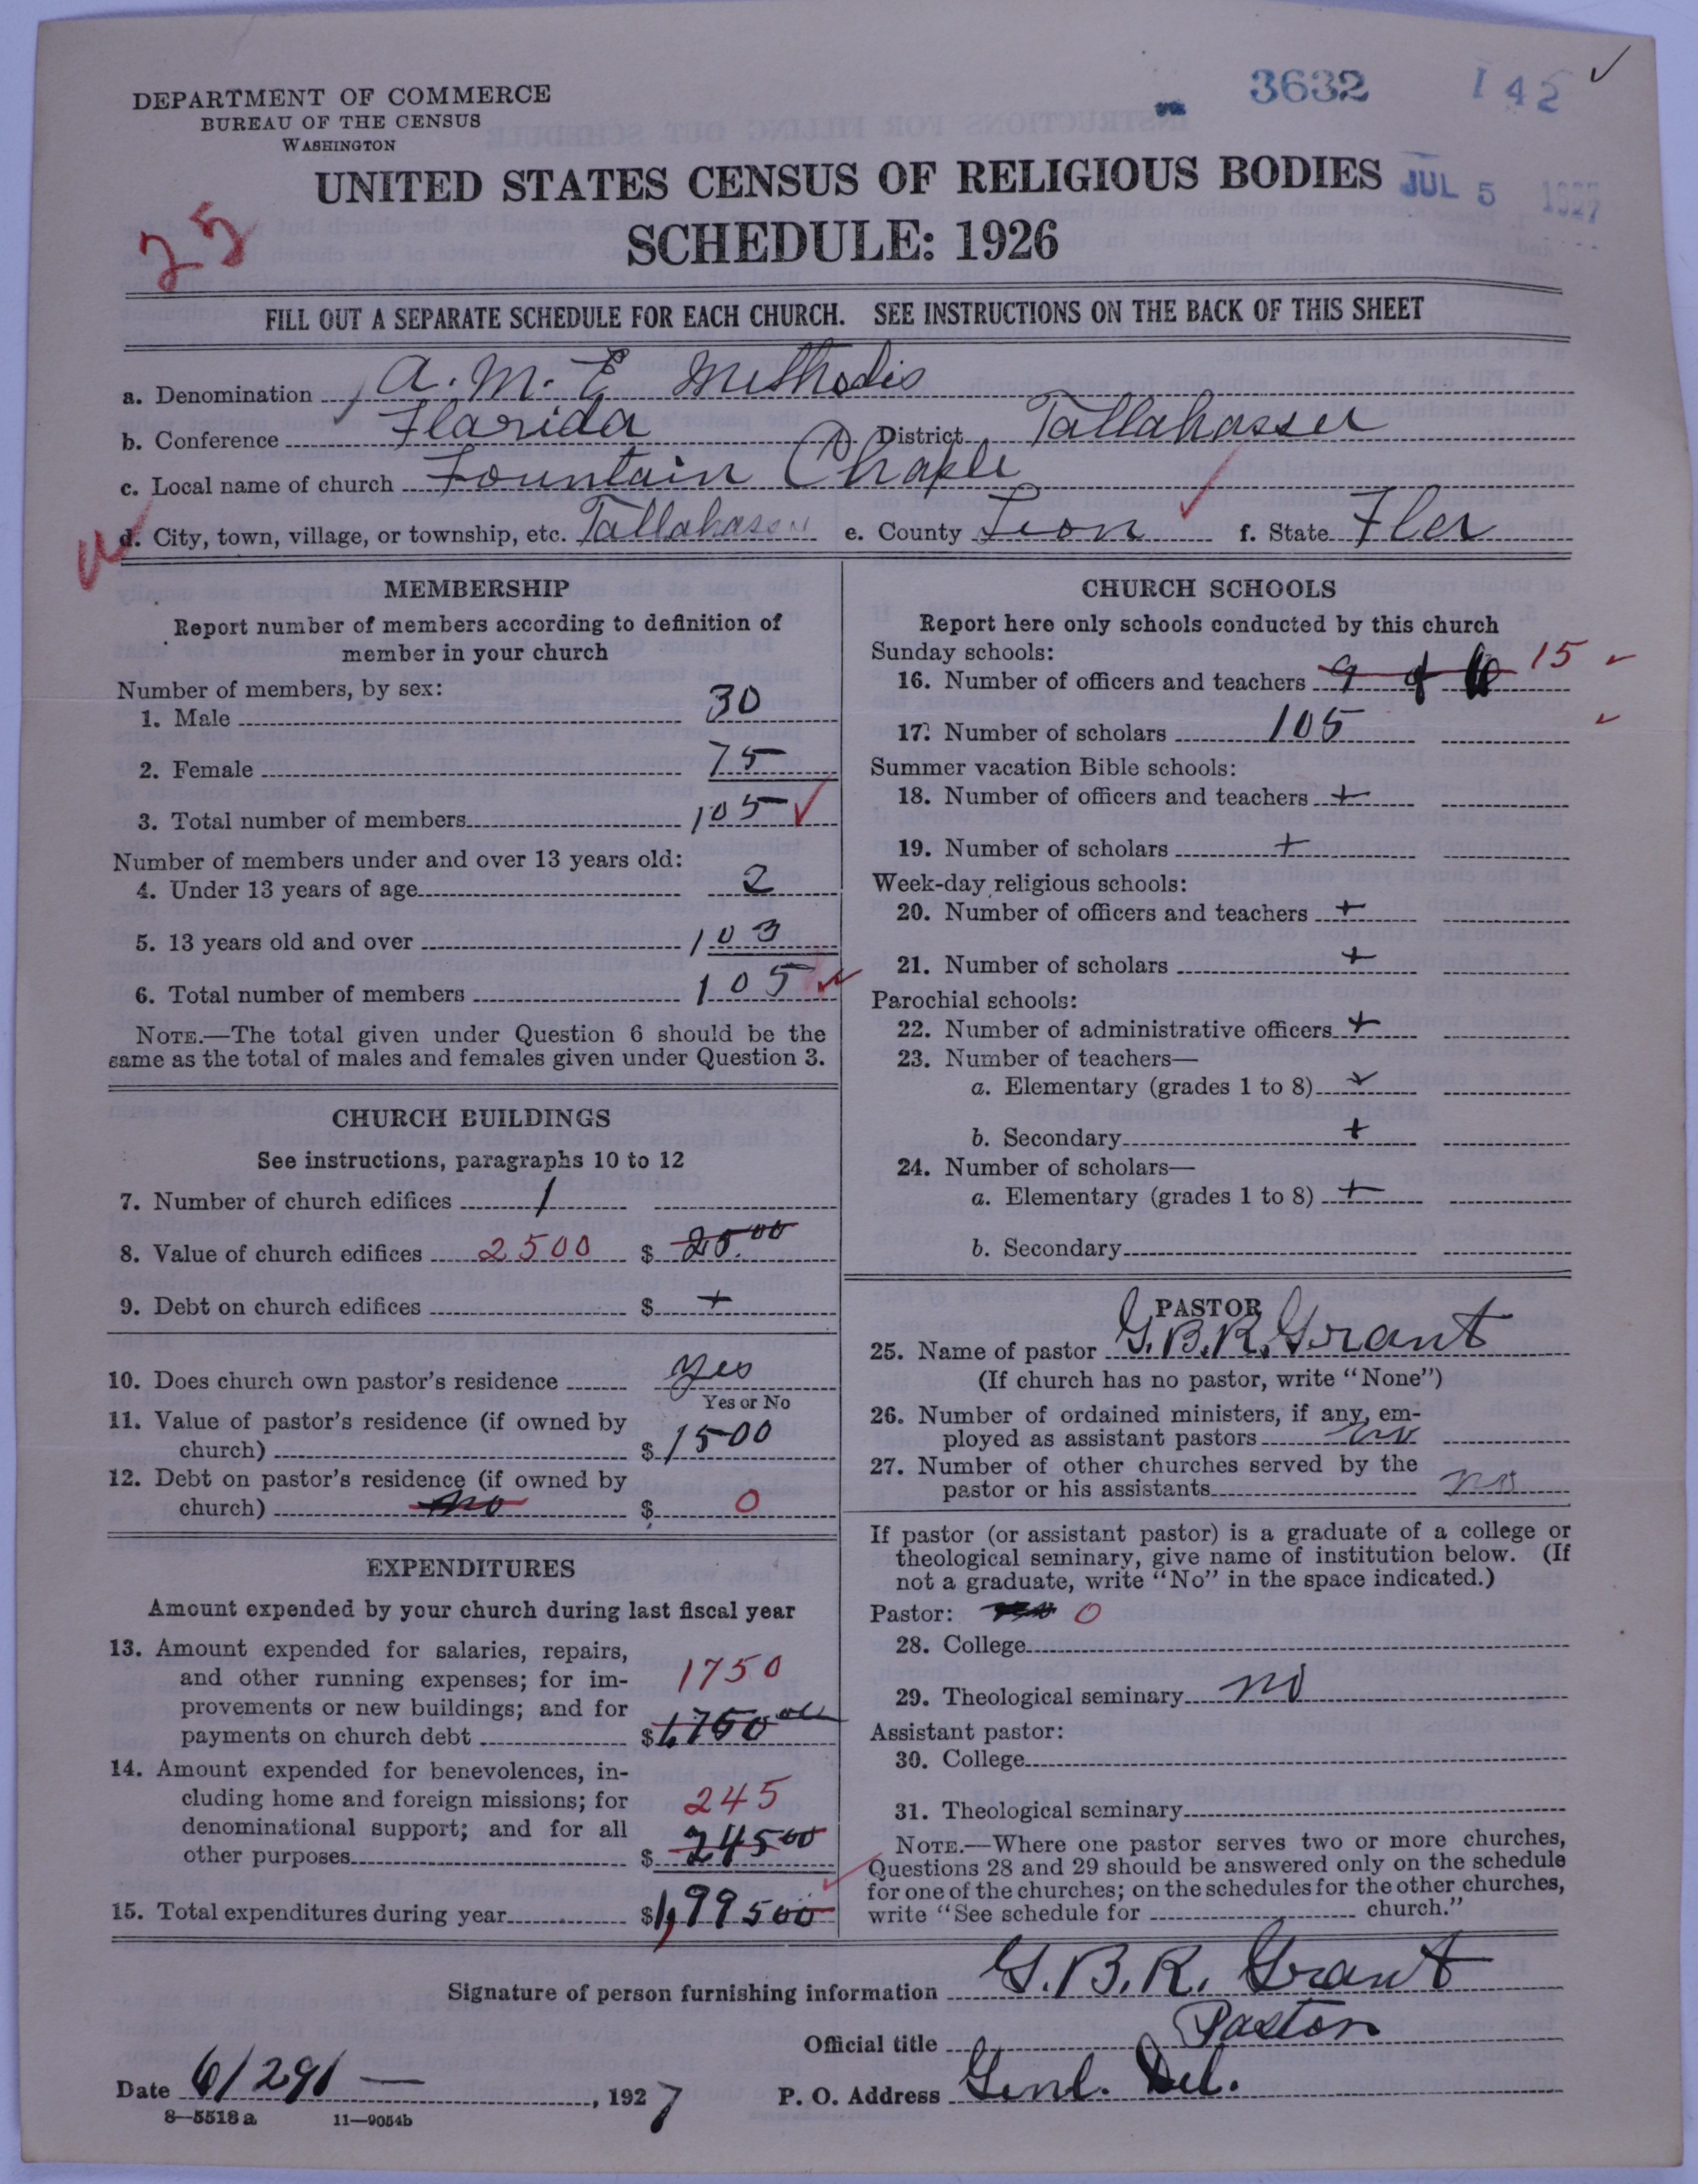 3632 142
DEPARTMENT OF COMMERCE
BUREAU OF THE CENSUS
WASHINGTON
UNITED STATES CENSUS OF RELIGIOUS BODIES
JUL 5 1927
SCHEDULE: 1926
FILL OUT A SEPARATE SCHEDULE FOR EACH CHURCH. SEE INSTRUCTIONS ON THE BACK OF THIS SHEET
a. Denomination A. M. E Methodis
b. Conference Florida District Tallahassee
c. Local name of church Fountain Chaple
d. City, town, village, or township, etc. Tallahassee e. County Leon f. State Fler
MEMBERSHIP
Report number of members according to definition of
member in your church
Number of members, by sex:
1. Male 30
2. Female 75
3. Total number of members 105
Number of members under and over 13 years old:
4. Under 13 years of age 2
5. 13 years old and over 103
6. Total number of members 105
NOTE.—The total given under Question 6 should be the
same as the total of males and females given under Question 3.
CHURCH BUILDINGS
See instructions, paragraphs 10 to 12
7. Number of church edifices 1
8. Value of church edifices 2500 $ 25.00
9. Debt on church edifices $ +
10. Does church own pastor's residence yes
Yes or No
11. Value of pastor's residence (if owned by
church) $ 1500
12. Debt on pastor's residence (if owned by
church) no $ 0
EXPENDITURES
Amount expended by your church during last fiscal year
13. Amount expended for salaries, repairs,
and other running expenses; for im-
provements or new buildings; and for
payments on church debt 1750 $ 1,750 00
14. Amount expended for benevolences, in-
cluding home and foreign missions; for
denominational support; and for all
other purposes 245 $ 245 00
15. Total expenditures during year $ 1,995 00
CHURCH SCHOOLS
Report here only schools conducted by this church
Sunday schools:
16. Number of officers and teachers 9 15
17. Number of scholars 105
Summer vacation Bible schools:
18. Number of officers and teachers +
19. Number of scholars +
Week-day religious schools:
20. Number of officers and teachers +
21. Number of scholars +
Parochial schools:
22. Number of administrative officers +
23. Number of teachers—
a. Elementary (grades 1 to 8) +
b. Secondary +
24. Number of scholars—
a. Elementary (grades 1 to 8) +
b. Secondary
PASTOR
25. Name of pastor G. B. R. Grant
(If church has no pastor, write "None")
26. Number of ordained ministers, if any, em-
ployed as assistant pastors
27. Number of other churches served by the
pastor or his assistants no
If pastor (or assistant pastor) is a graduate of a college or
theological seminary, give name of institution below. (If
not a graduate, write "No" in the space indicated.)
Pastor: 0
28. College
29. Theological seminary no
Assistant pastor:
30. College
31. Theological seminary
NOTE.—Where one pastor serves two or more churches,
Questions 28 and 29 should be answered only on the schedule
for one of the churches; on the schedules for the other churches,
write "See schedule for church."
Signature of person furnishing information G. B. R. Grant
Official title Pastor
Date 6/29 , 1927 P. O. Address Genl. Del.
8—5518 a 11—9054b